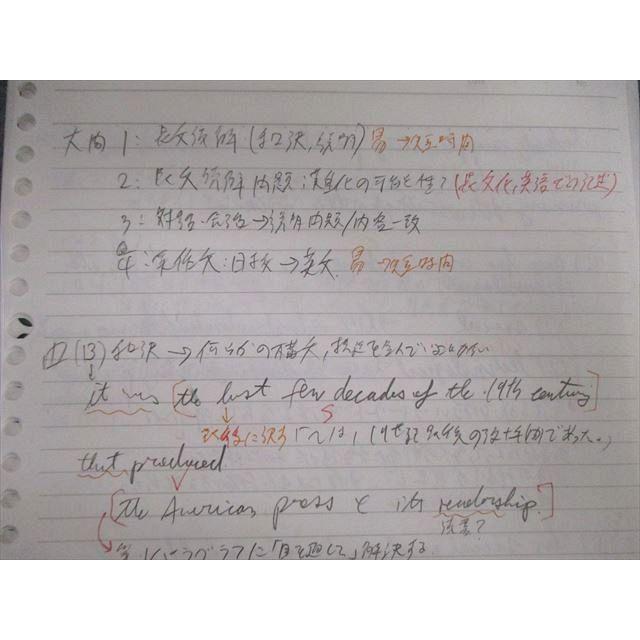 大問 1: 長文読解 (和訳, 説明) 易→短時間
2: 長文読解問題: 変化の可能性? (長文化, 英語で記述)
3: 対話・会話→説明問題/内容一致
4: 英作文: 日本文→英文. 易→短時間
(13) 和訳 → 何らかの構文,
it was [the last few decades of the 19th century]
以後に訳す 「〜は, 19世紀 の数十年間であった。」
that produced
[the American press & its readership.]
注意?
パラグラフに「目を通して」解決する